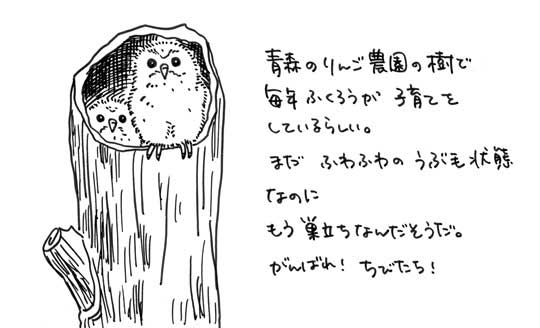 青森のりんご農園の樹で
毎年ふくろうが子育てを
しているらしい。
まだ ふわふわの うぶ毛状態
なのに
もう巣立ちなんだそうだ。
がんばれ! ちびたち!